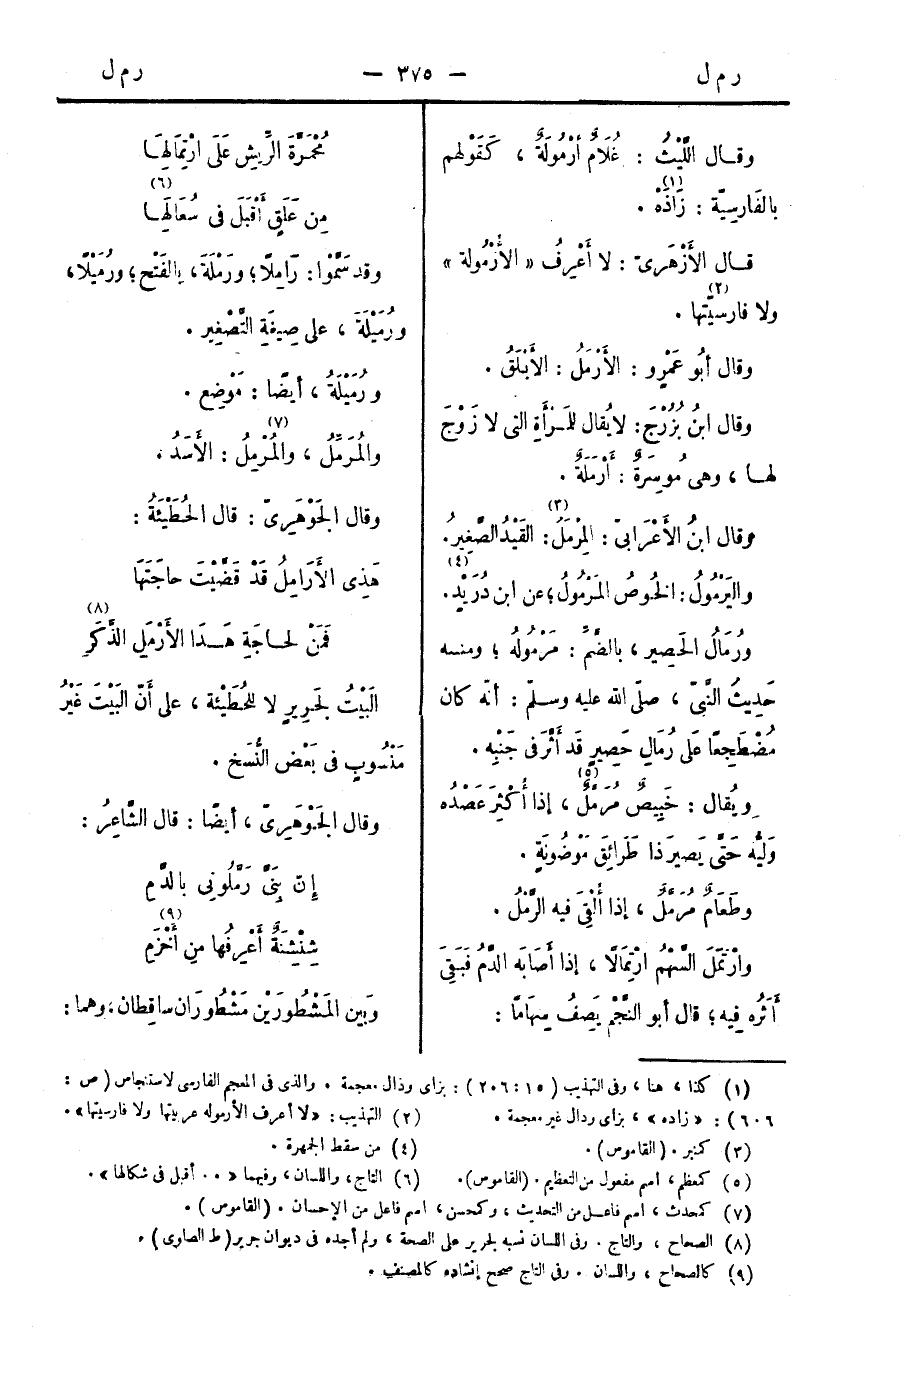 ر م ل — ٣٧٥ — ر م ل
وقــال اللَّيْثُ : غُلَامٌ أُرْمُولَةٌ ، كَقَوْلهم
بالفَارِسِيّة : زَاذَهْ (١) .
قــال الأَزْهَرِىّ : لا أَعْرِفُ « الأُرْمُولة »
ولا فارسيّتها (٢) .
وقال أبُو عَمْرٍو : الأَرْمَلُ : الأَبْلَقُ .
وقال ابنُ بُزُرْجَ : لا يُقال للمَـرْأَةِ التى لا زَوْجَ
لهــا ، وهى مُوسِرَةٌ : أَرْمَلَةٌ .
وقال ابنُ الأَعْرَابىّ : المِرْمَلُ (٣) : القَيْدُ الصَّغِيرُ .
واليَرْمُولُ (٤) : الخُوصُ المَرْمُولُ ؛ عن ابن دُرَيْدٍ .
ورُمَالُ الحَصِير ، بالضَّمّ : مَرْمُولُهُ ؛ ومنــه
حَدِيثُ النَّبىّ ، صلّى الله عليه وســلّم : أنّه كان
مُضْطَجِعًا عَلَى رُمَالِ حَصِيرٍ قَد أَثَّرَ فى جَنْبِهِ .
ويُقال : خَبِيصٌ مُرَمَّلٌ (٥) ، إذا أُكْثِرَ عَصْدُه
وَلَيُّه حَتَّى يَصِيرَ ذا طَرَائِقَ مَوْضُونَةٍ .
وطَعَامٌ مُرَمَّلٌ ، إذا أُلْقِىَ فيه الرَّمْلُ .
وارْتَمَلَ السَّهْمُ ارْتِمَالًا ، إذا أَصَابَه الدَّمُ فَبَقِىَ
أَثَرُه فِيه ؛ قال أبو النَّجْمِ يَصِفُ سِهَامًا :
مُحْمَرَّةَ الرِّيشِ عَلَى ارْتِمَالِهَــا
مِن عَلَقٍ أَقْبَلَ فى سُعَالِهَــا (٦)
وقد سَمَّوْا : رَامِلًا ؛ ورَمْلَةَ ، بالفَتْح ؛ ورُمَيْلًا ،
ورُمَيْلَةَ ، على صِيغَةِ التَّصْغِير .
ورُمَيْلَةُ ، أيضًا : مَوْضِع .
والمُرَمِّلُ (٧) ، والمُرْمِلُ : الأَسَدُ .
وقال الجَوْهَرِىّ : قال الحُطَيْئَةُ :
هَذِى الأَرَامِلُ قَدْ قَضَّيْتَ حاجَتَهَا
فَمَنْ لحــاجَةِ هَــذَا الأَرْمَلِ الذَّكَرِ (٨)
البَيْتُ لجَرِيرٍ لا للحُطَيْئة ، على أَنّ البَيْتَ غَيْرُ
مَنْسُوبٍ فى بَعْض النُّسَخ .
وقال الجَوْهَرِىّ ، أيضًا : قال الشَّاعِرُ :
إِنّ بَنِىَّ رَمَّلُونِى بالدَّمِ
شِنْشِنَةٌ أَعْرِفُها مِن أَخْزَمِ (٩)
وَبَين المَشْطُورَيْن مَشْطُورَان ساقِطان ، وهما :
(١) كذا ، هنا ، وفى التهذيب (١٥ : ٢٠٦) : بزاى وذال معجمة . والذى فى المعجم الفارسى لاستنجاس (ص :
٦٠٦) : « زاده » ، بزاى ودال غير معجمة . (٢) التهذيب : «لا أعرف الأرموله عربيتها ولا فارسيتها» .
(٣) كمنبر . (القاموس) . (٤) من سقط الجمهرة .
(٥) كمعظم ، اسم مفعول من التعظيم . (القاموس) . (٦) التاج ، واللسان ، وفيهما « .. أقبل فى شكالها » .
(٧) كمحدث ، اسم فاعــل من التحديث ، وكمحسن ، اسم فاعل من الإحسان . (القاموس ) .
(٨) الصحاح ، والتاج . وفى اللسان نسبه لجرير على الصحة ، ولم أجده فى ديوان جرير (ط الصاوى ) .
(٩) كالصحاح ، واللسان . وفى التاج صحح إنشاده كالمصنف .